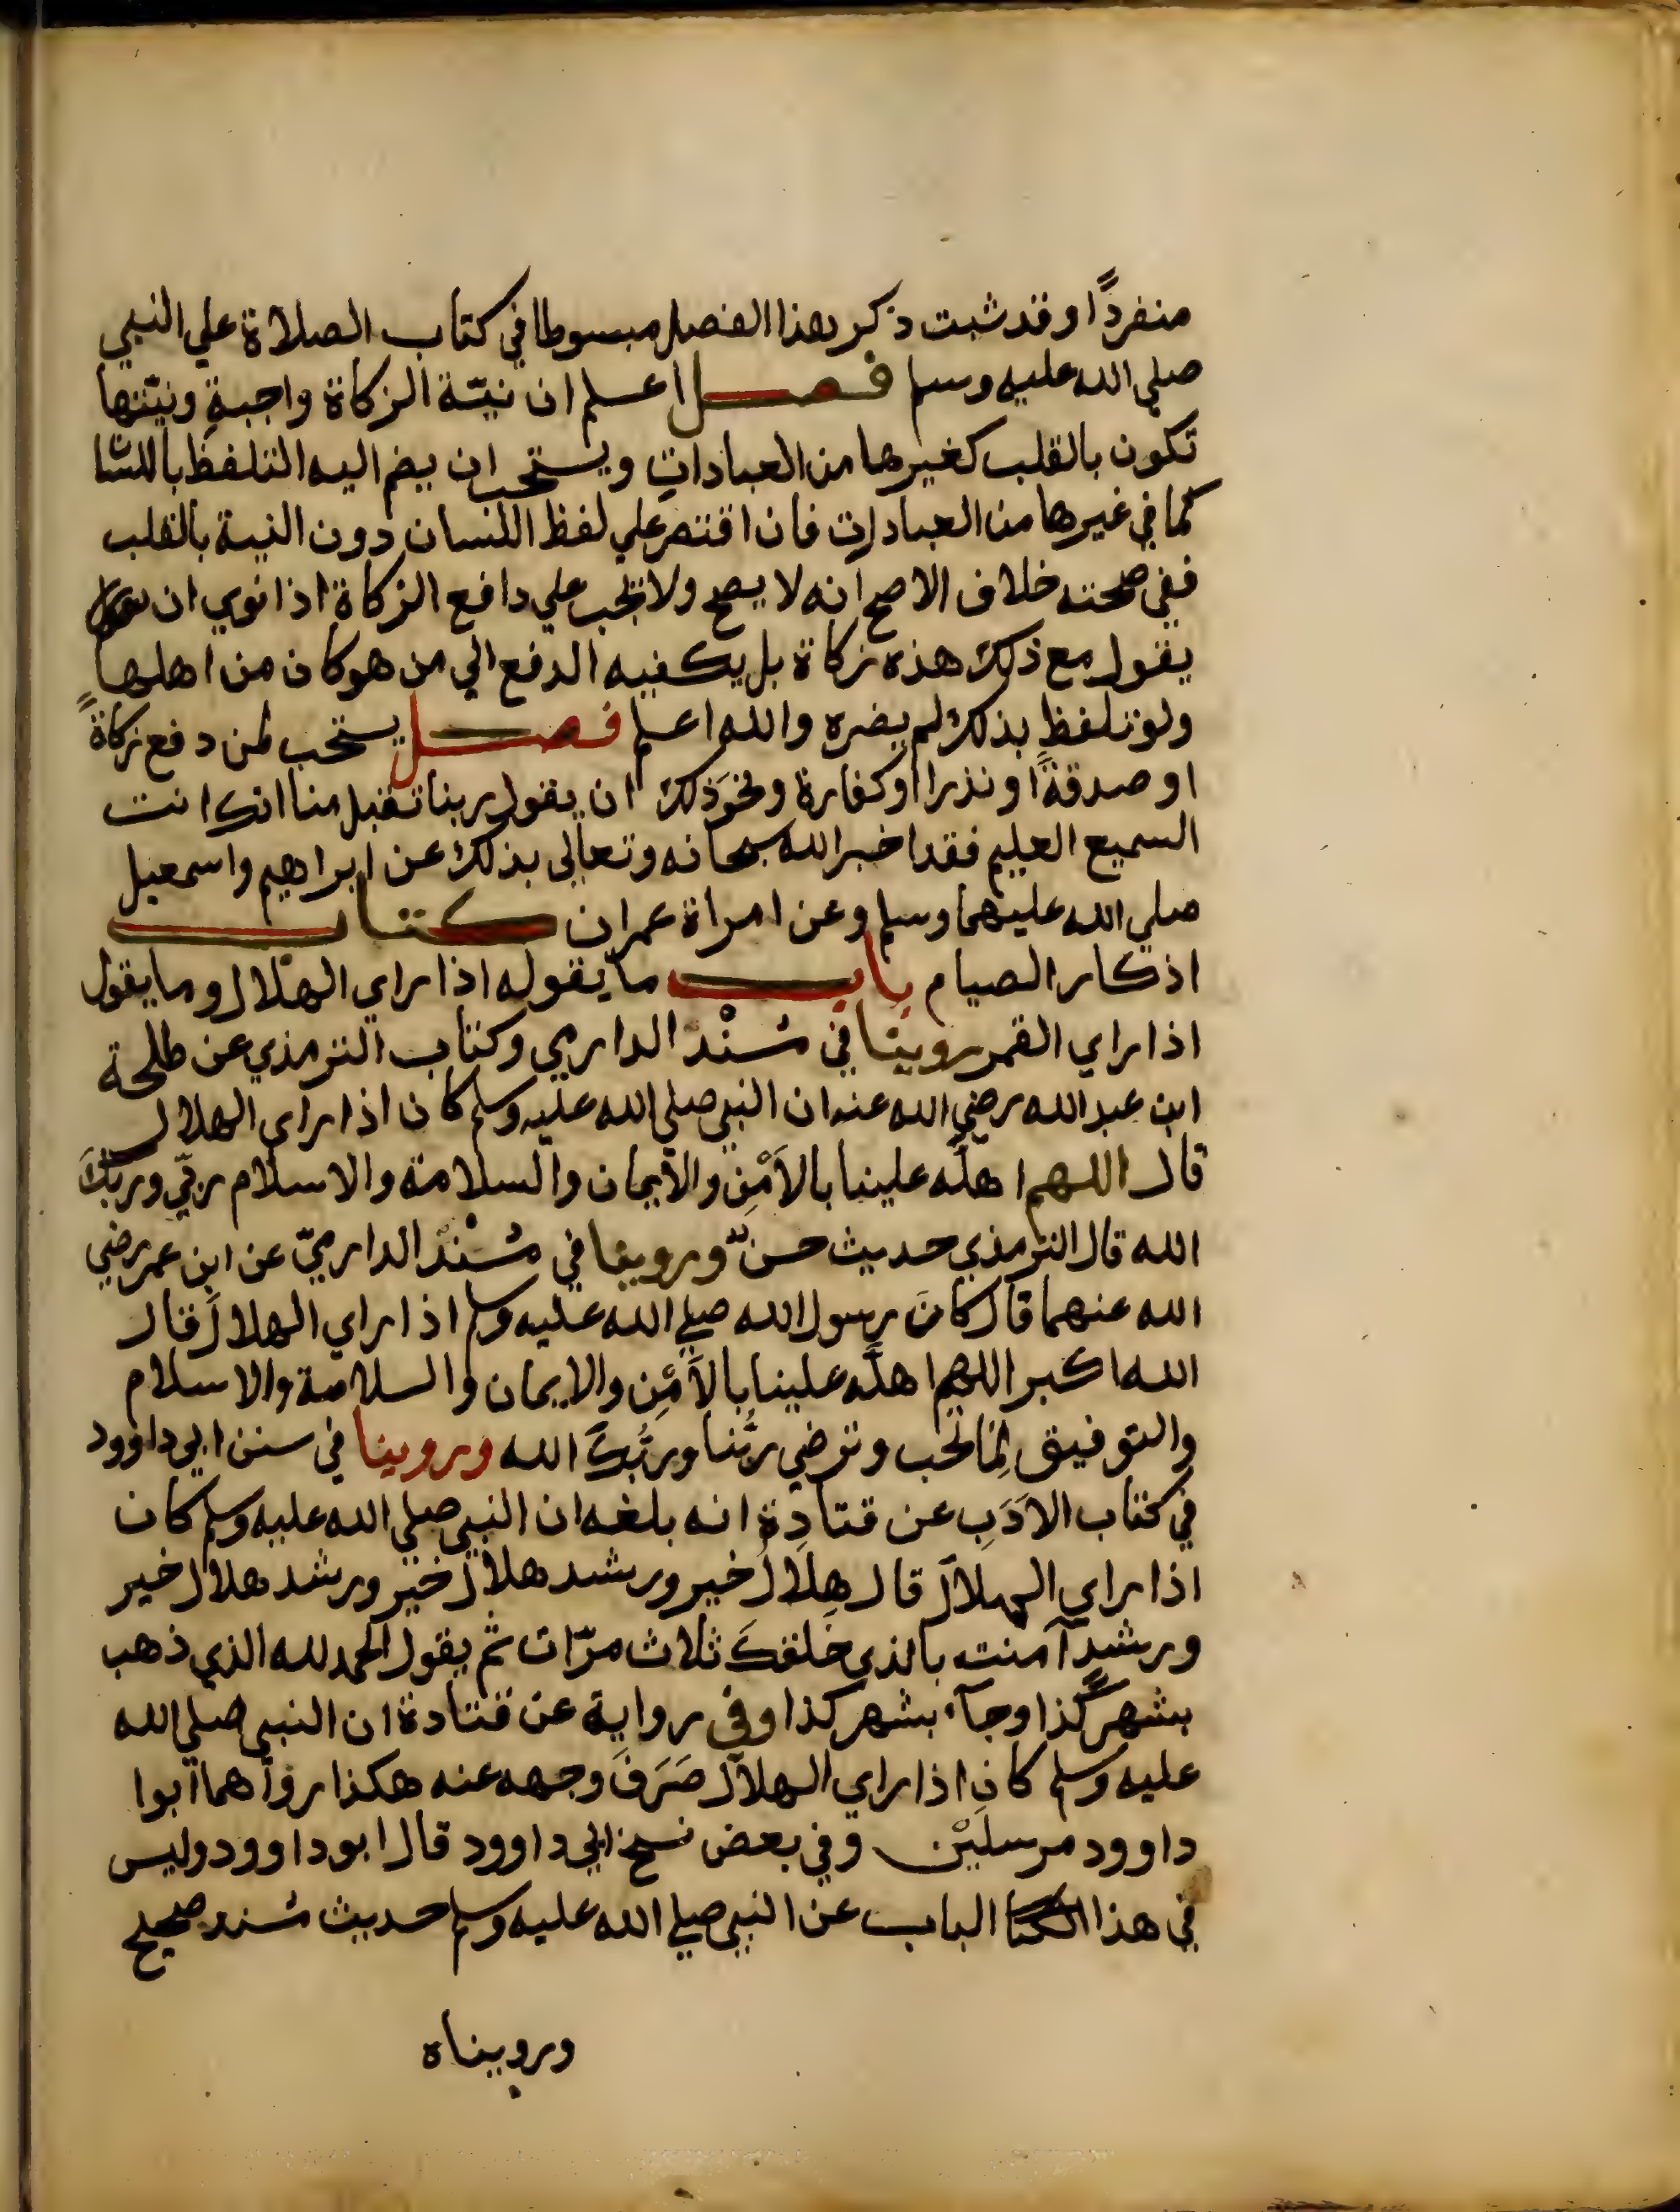 منفردًا وقد ثبت ذكر هذا الفصل مبسوطا في كتاب الصلاة علي النبي
صلي الله عليه وسلم فصل اعلم ان نيّة الزكاة واجبةٍ ونيّتها
تكون بالقلب كغيرها من العباداتِ ويستحب ان يضم اليه التلفظ باللسا
كما في غيرها من العبادات فان اقتصر علي لفظ اللسان دون النية بالقلب
ففي صحته خلاف الاصح انه لا يصح ولا تجب علي دافع الزكاة اذا نوي ان
يقول مع ذلك هذه زكاة بل يكفيه الدفع الي من هو كان من اهلها
ولو تلفظ بذلك لم يضره والله اعلم فصل يستحب لمن دفع زكاةً
او صدقةً او نذرا او كفارة ونحوَ ذلك ان يقول ربنا تقبل منا انك انت
السميع العليم فقد اخبر الله سبحانه وتعالي بذلك عن ابراهيم واسمعيل
صلي الله عليهما وسلم وعن امراة عمران كتاب
اذكار الصيام باب ما يقوله اذا راي الهلال وما يقول
اذا راي القمر روينا في مُسْنَد الدارمي وكتاب الترمذي عن طلحة
ابن عبد الله رضي الله عنه ان النبي صلي الله عليه وسلم كان اذا راي الهلال
قال اللهم اهلّه علينا بالاَمْنِ والايمان والسلامة والاسلام ربّي وربّكَ
الله قال الترمذي حديث حسنٌ وروينا في مُسْنَد الدارميّ عن ابن عمر رضي
الله عنهما قال كانَ رسول الله صلي الله عليه وسلم اذا راي الهلالَ قال
الله اكبر اللهم اهلّه علينا بالاَمْنِ والايمان والسلامة والاسلام
والتوفيق لِمَا تحب وترضي ربُّنا وربُّكَ الله وروينا في سنن ابي داوود
في كتاب الادَبِ عن قتادة انه بلغه ان النبي صلي الله عليه وسلم كان
اذا راي الهلالَ قال هِلالُ خير ورشد هلالُ خير ورشد هلال خير
ورشدٍ آمنت بالذي خَلقكَ ثلاث مرّات ثم يقول الحمد لله الذي ذهب
بشهر كذا وجآء بشهر كذا وفي رواية عن قتادة ان النبي صلي الله
عليه وسلم كان اذا راي الهلالَ صَرَفَ وجهه عنه هكذا رواهما ابوا
داوود مرسلَيْن وفي بعض نسخ ابي داوود قال ابو داوود وليس
في هذا الباب عن النبي صلي الله عليه وسلم حديث مُسْند صحيح
ورويناه